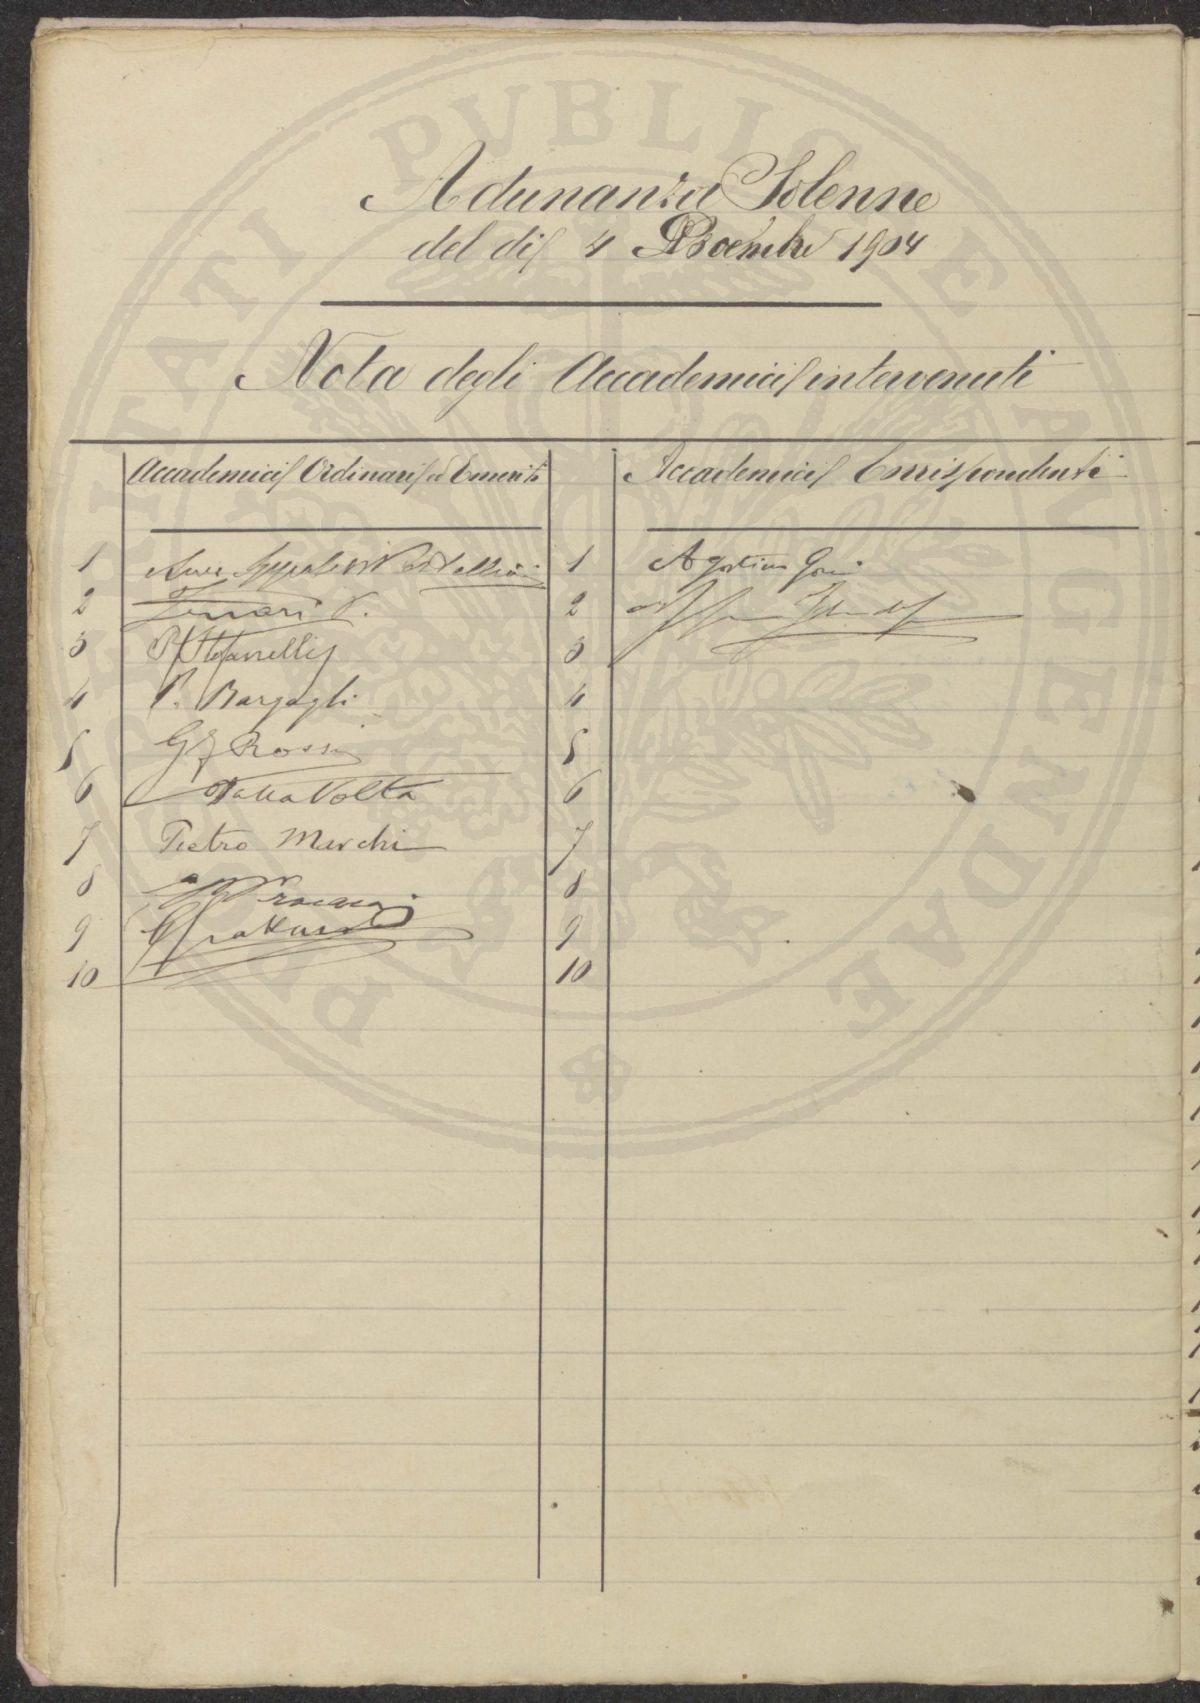 Adunanza Solenne
del dì 4 Dicembre 1904
Nota degli Accademici intervenuti
Accademici Ordinari ed Emeriti
Accademici Corrispondenti
1
2 Ferrari P.
3 Stefanelli
4 P. Bargagli
5 G G Rossi
6 Dalla Volta
7 Pietro Marchi
8
9
10
1 Agostino Gori
2
3
4
5
6
7
8
9
10
PVBLICAE AVGENDAE